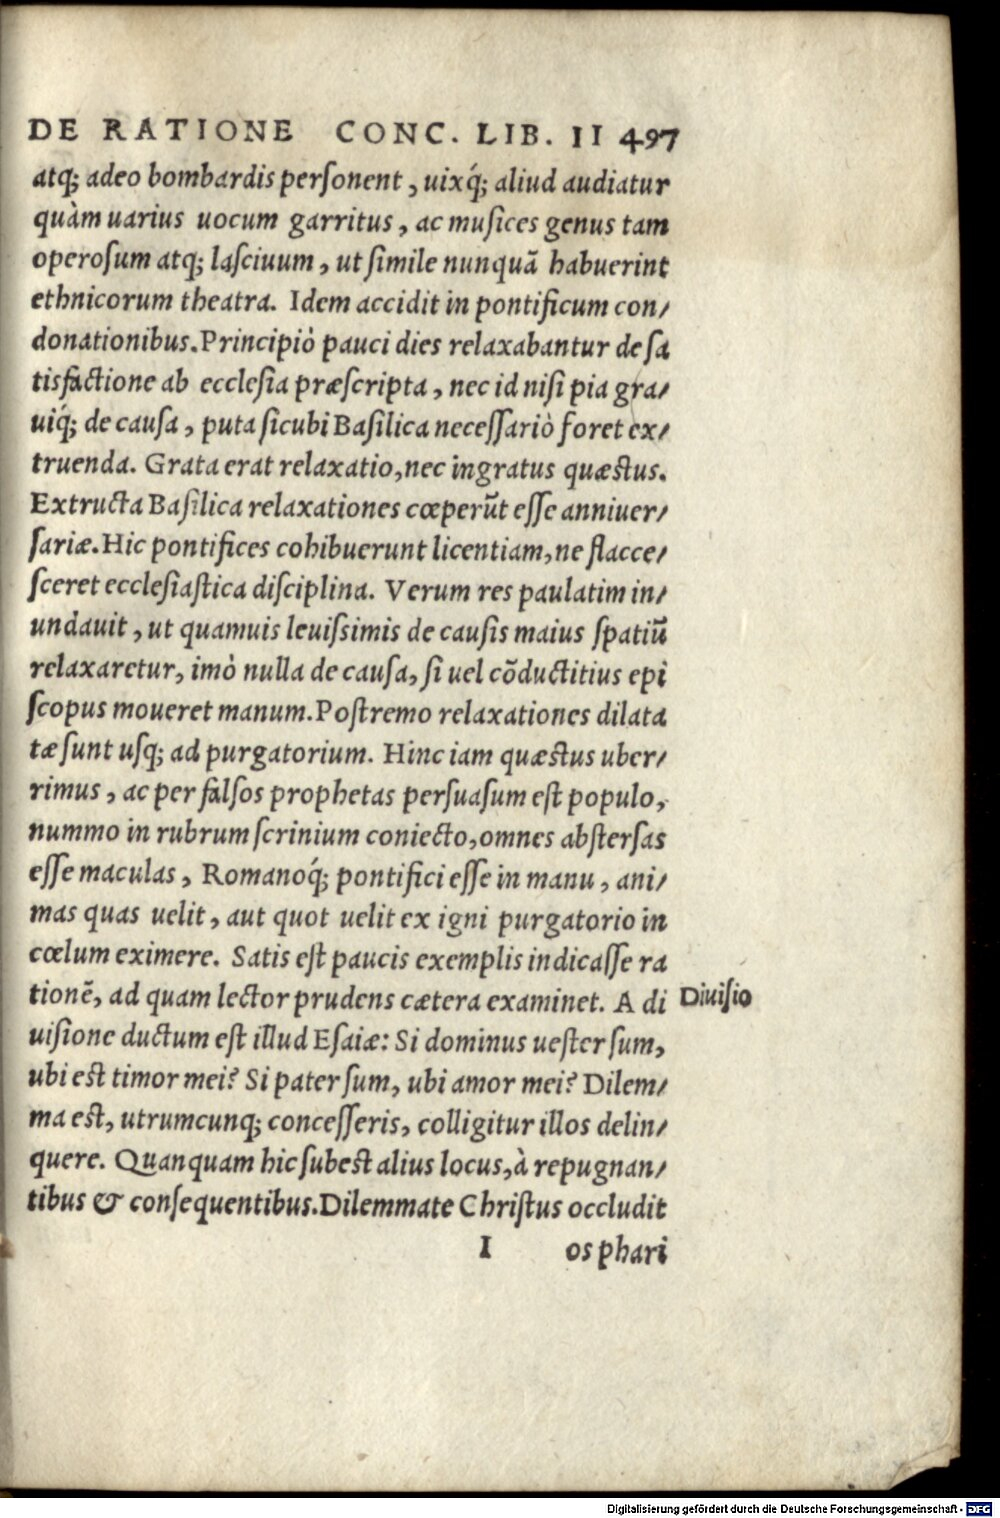 DE RATIONE CONC. LIB. II 497
atq; adeo bombardis perſonent, uixq́; aliud audiatur
quàm uarius uocum garritus, ac muſices genus tam
operoſum atq; laſciuum, ut ſimile nunquã habuerint
ethnicorum theatra. Idem accidit in pontificum con/
donationibus. Principiò pauci dies relaxabantur de ſa
tisfactione ab eccleſia præſcripta, nec id niſi pia gra/
uiq́; de cauſa, puta ſicubi Baſilica neceſſariò foret ex/
truenda. Grata erat relaxatio, nec ingratus quæſtus.
Extructa Baſilica relaxationes cœperũt eſſe anniuer/
ſariæ. Hic pontifices cohibuerunt licentiam, ne flacce/
ſceret eccleſiaſtica diſciplina. Verum res paulatim in/
undauit, ut quamuis leuiſsimis de cauſis maius ſpatiũ
relaxaretur, imò nulla de cauſa, ſi uel cõductitius epi
ſcopus moueret manum. Poſtremo relaxationes dilata
tæ ſunt uſq; ad purgatorium. Hinc iam quæſtus uber/
rimus, ac per falſos prophetas perſuaſum eſt populo,
nummo in rubrum ſcrinium coniecto, omnes abſterſas
eſſe maculas, Romanoq́; pontifici eſſe in manu, ani/
mas quas uelit, aut quot uelit ex igni purgatorio in
cœlum eximere. Satis eſt paucis exemplis indicaſſe ra
tionẽ, ad quam lector prudens cætera examinet. A di
Diuiſio
uiſione ductum eſt illud Eſaiæ: Si dominus ueſter ſum,
ubi eſt timor mei? Si pater ſum, ubi amor mei? Dilem/
ma eſt, utrumcunq; conceſſeris, colligitur illos delin/
quere. Quanquam hic ſubeſt alius locus, à repugnan/
tibus & conſequentibus. Dilemmate Chriſtus occludit
I os phari
Digitalisierung gefördert durch die Deutsche Forschungsgemeinschaft - DFG